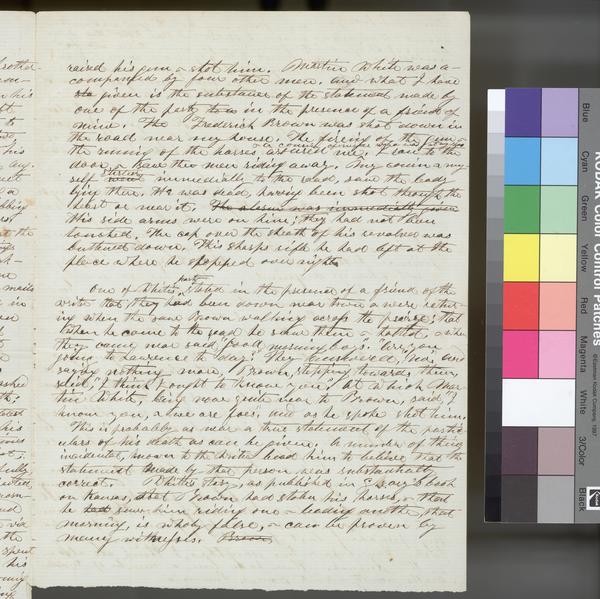 raised his gun & shot him. Martin White was a-
companied by four other men. and what I have
given is the substance of the statement made by
one of the party in the presence of a friend of
mine. The Fredrick Brown was shot down in
the road near my house. The firing of the gun &
the running of the horses called me. I ran to the
door & saw two men riding away. My cousin & my-
self immediately to the road, saw the body
lying there. He was dead, having been shot through the
heart or near it. The alarm was immediately
His side arms were on him; they had not been
touched. The cap over the sheath of his revolver was
buttoned down. His sharps rifle he had left at the
place where he stopped over night.
One of Whites party stated in the presence of a friend of the
write that they had been down near & were return-
ing when the saw Brown walking across the prairie; that
when he came to the road he saw them & halted, & when
they came near said "good morning boys." "Are you
going to Lawrence to day?" They answered, "no," and
saying nothing more, Brown, stepping towards them,
said, "I think I ought to know you," at which Mar-
tin White, being near quite near to Brown, said, "I
know you, & we are foes," and as he spoke shot him.
This is probably as near a true statement of the partic-
ulars of his death as can be given. A number of things
incidental, known to the writer lead him to believe that the
statement made by that person was substantially
correct. White's story, as published in book
on Kansas, that Brown had stolen his horses, & that
he had seen him riding one & leading another, that
morning, is wholy false, & can be proven by
many witnesses. Brown
KODAK Color Control Patches
Blue
Cyan
Green
Yellow
Red
Magenta
White
3/Color
Black